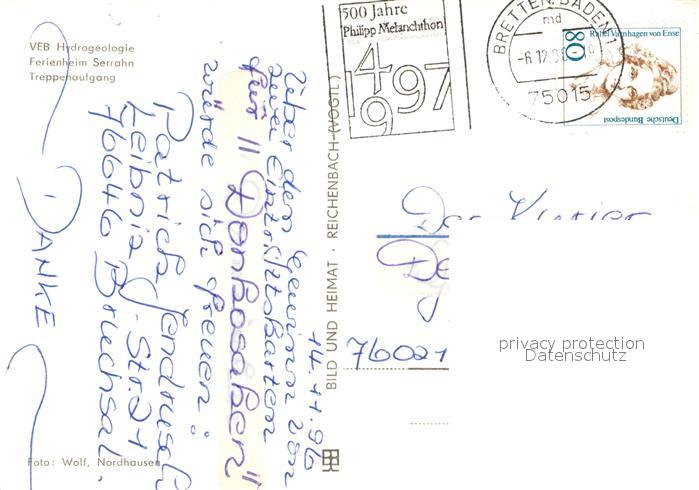 VEB Hydrogeologie
Ferienheim Serrahn
Treppenaufgang
500 Jahre
Philipp Melanchthon
1497
1997
BRETTEN, BADEN 1
md
-6.12.96-
75015
Rahel Varnhagen von Ense
80
Deutsche Bundespost
Über den Gewinn von
zwei Eintrittskarten
für "Donkosaken"
würde sich freuen:
Patrick
Leibniz Str. 21
76646 Bruchsal
DANKE
14.11.96
BILD UND HEIMAT · REICHENBACH (VOGTL)
Der Kurier
76021
privacy protection
Datenschutz
Foto: Wolf, Nordhausen